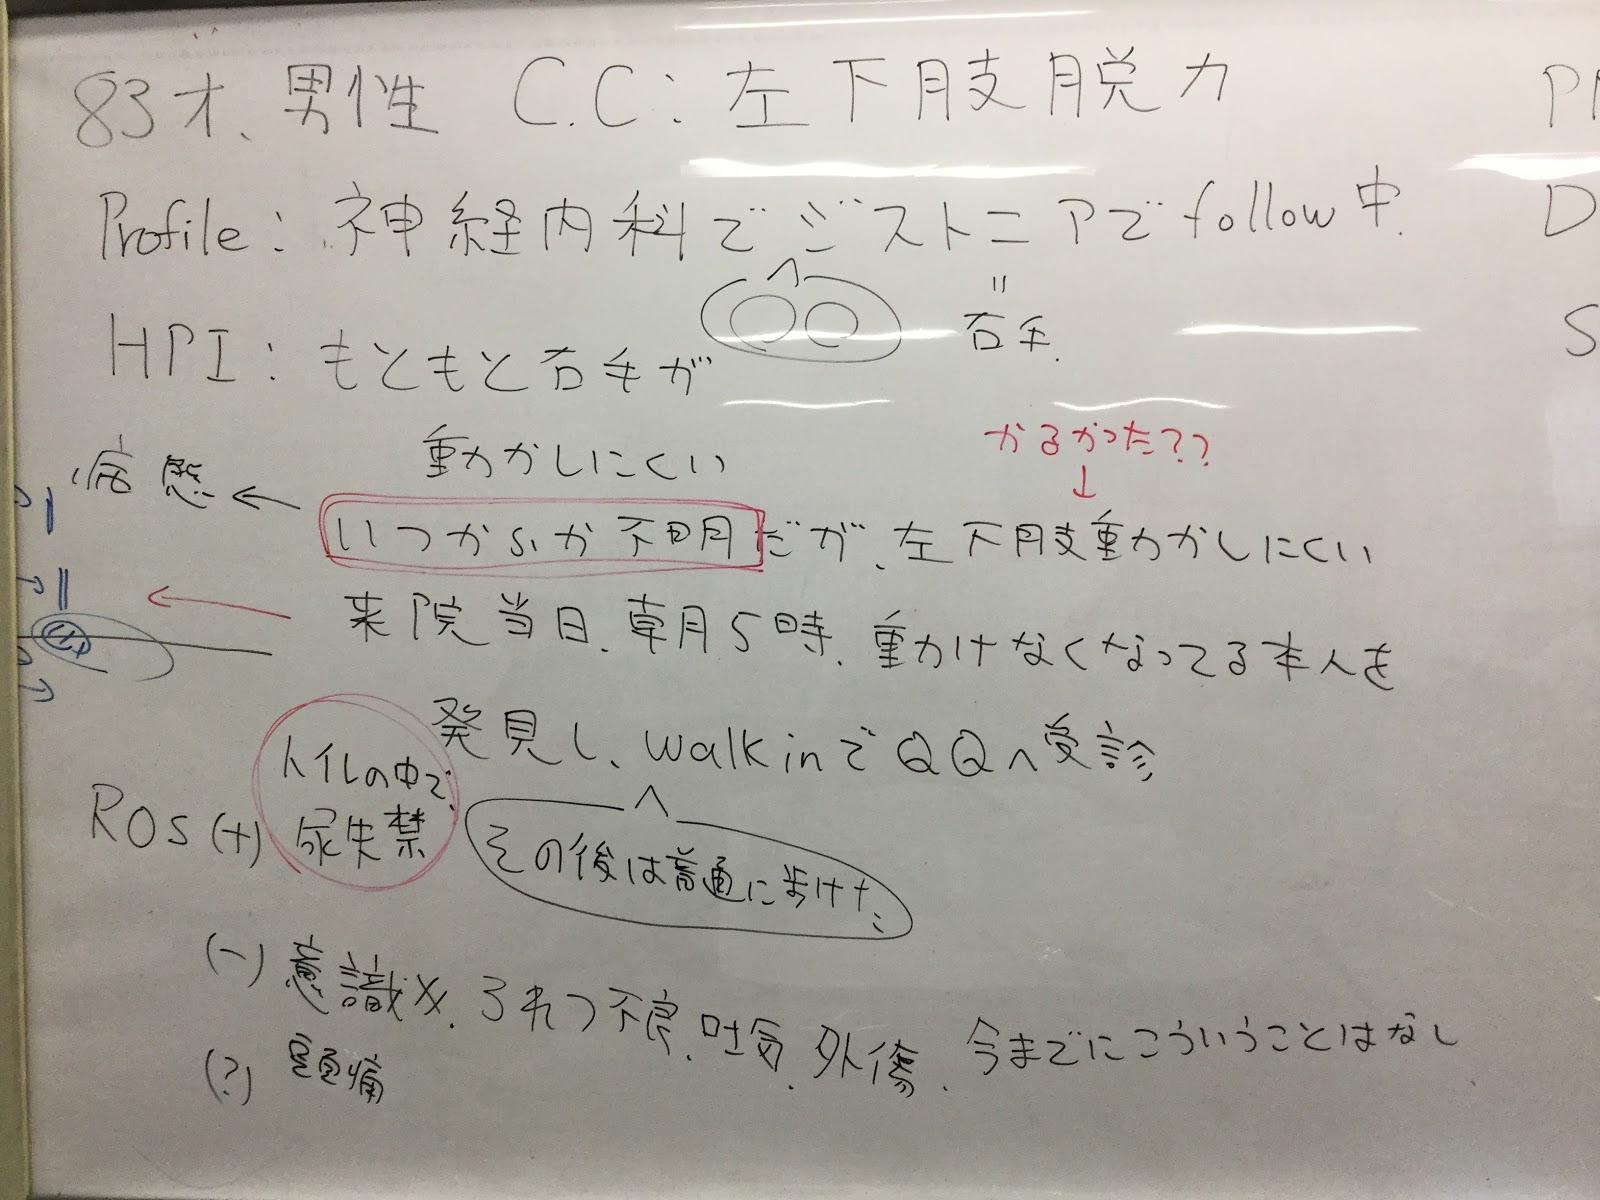 83才、男性 C.C: 左下肢脱力
Profile: 神経内科でジストニアでfollow中.
〃
右手.
HPI: もともと右手が
動かしにくい
かるかった??
↓
病態 ←
いつからか不明だが、左下肢動かしにくい
来院当日、朝5時、動けなくなってる本人を
発見し、walk inでQQへ受診
その後は普通に歩けた
ROS (+) トイレの中で、
尿失禁
(-) 意識、ろれつ不良、吐気、外傷、今までにこういうことはなし
(?) 頭痛
P
D
S